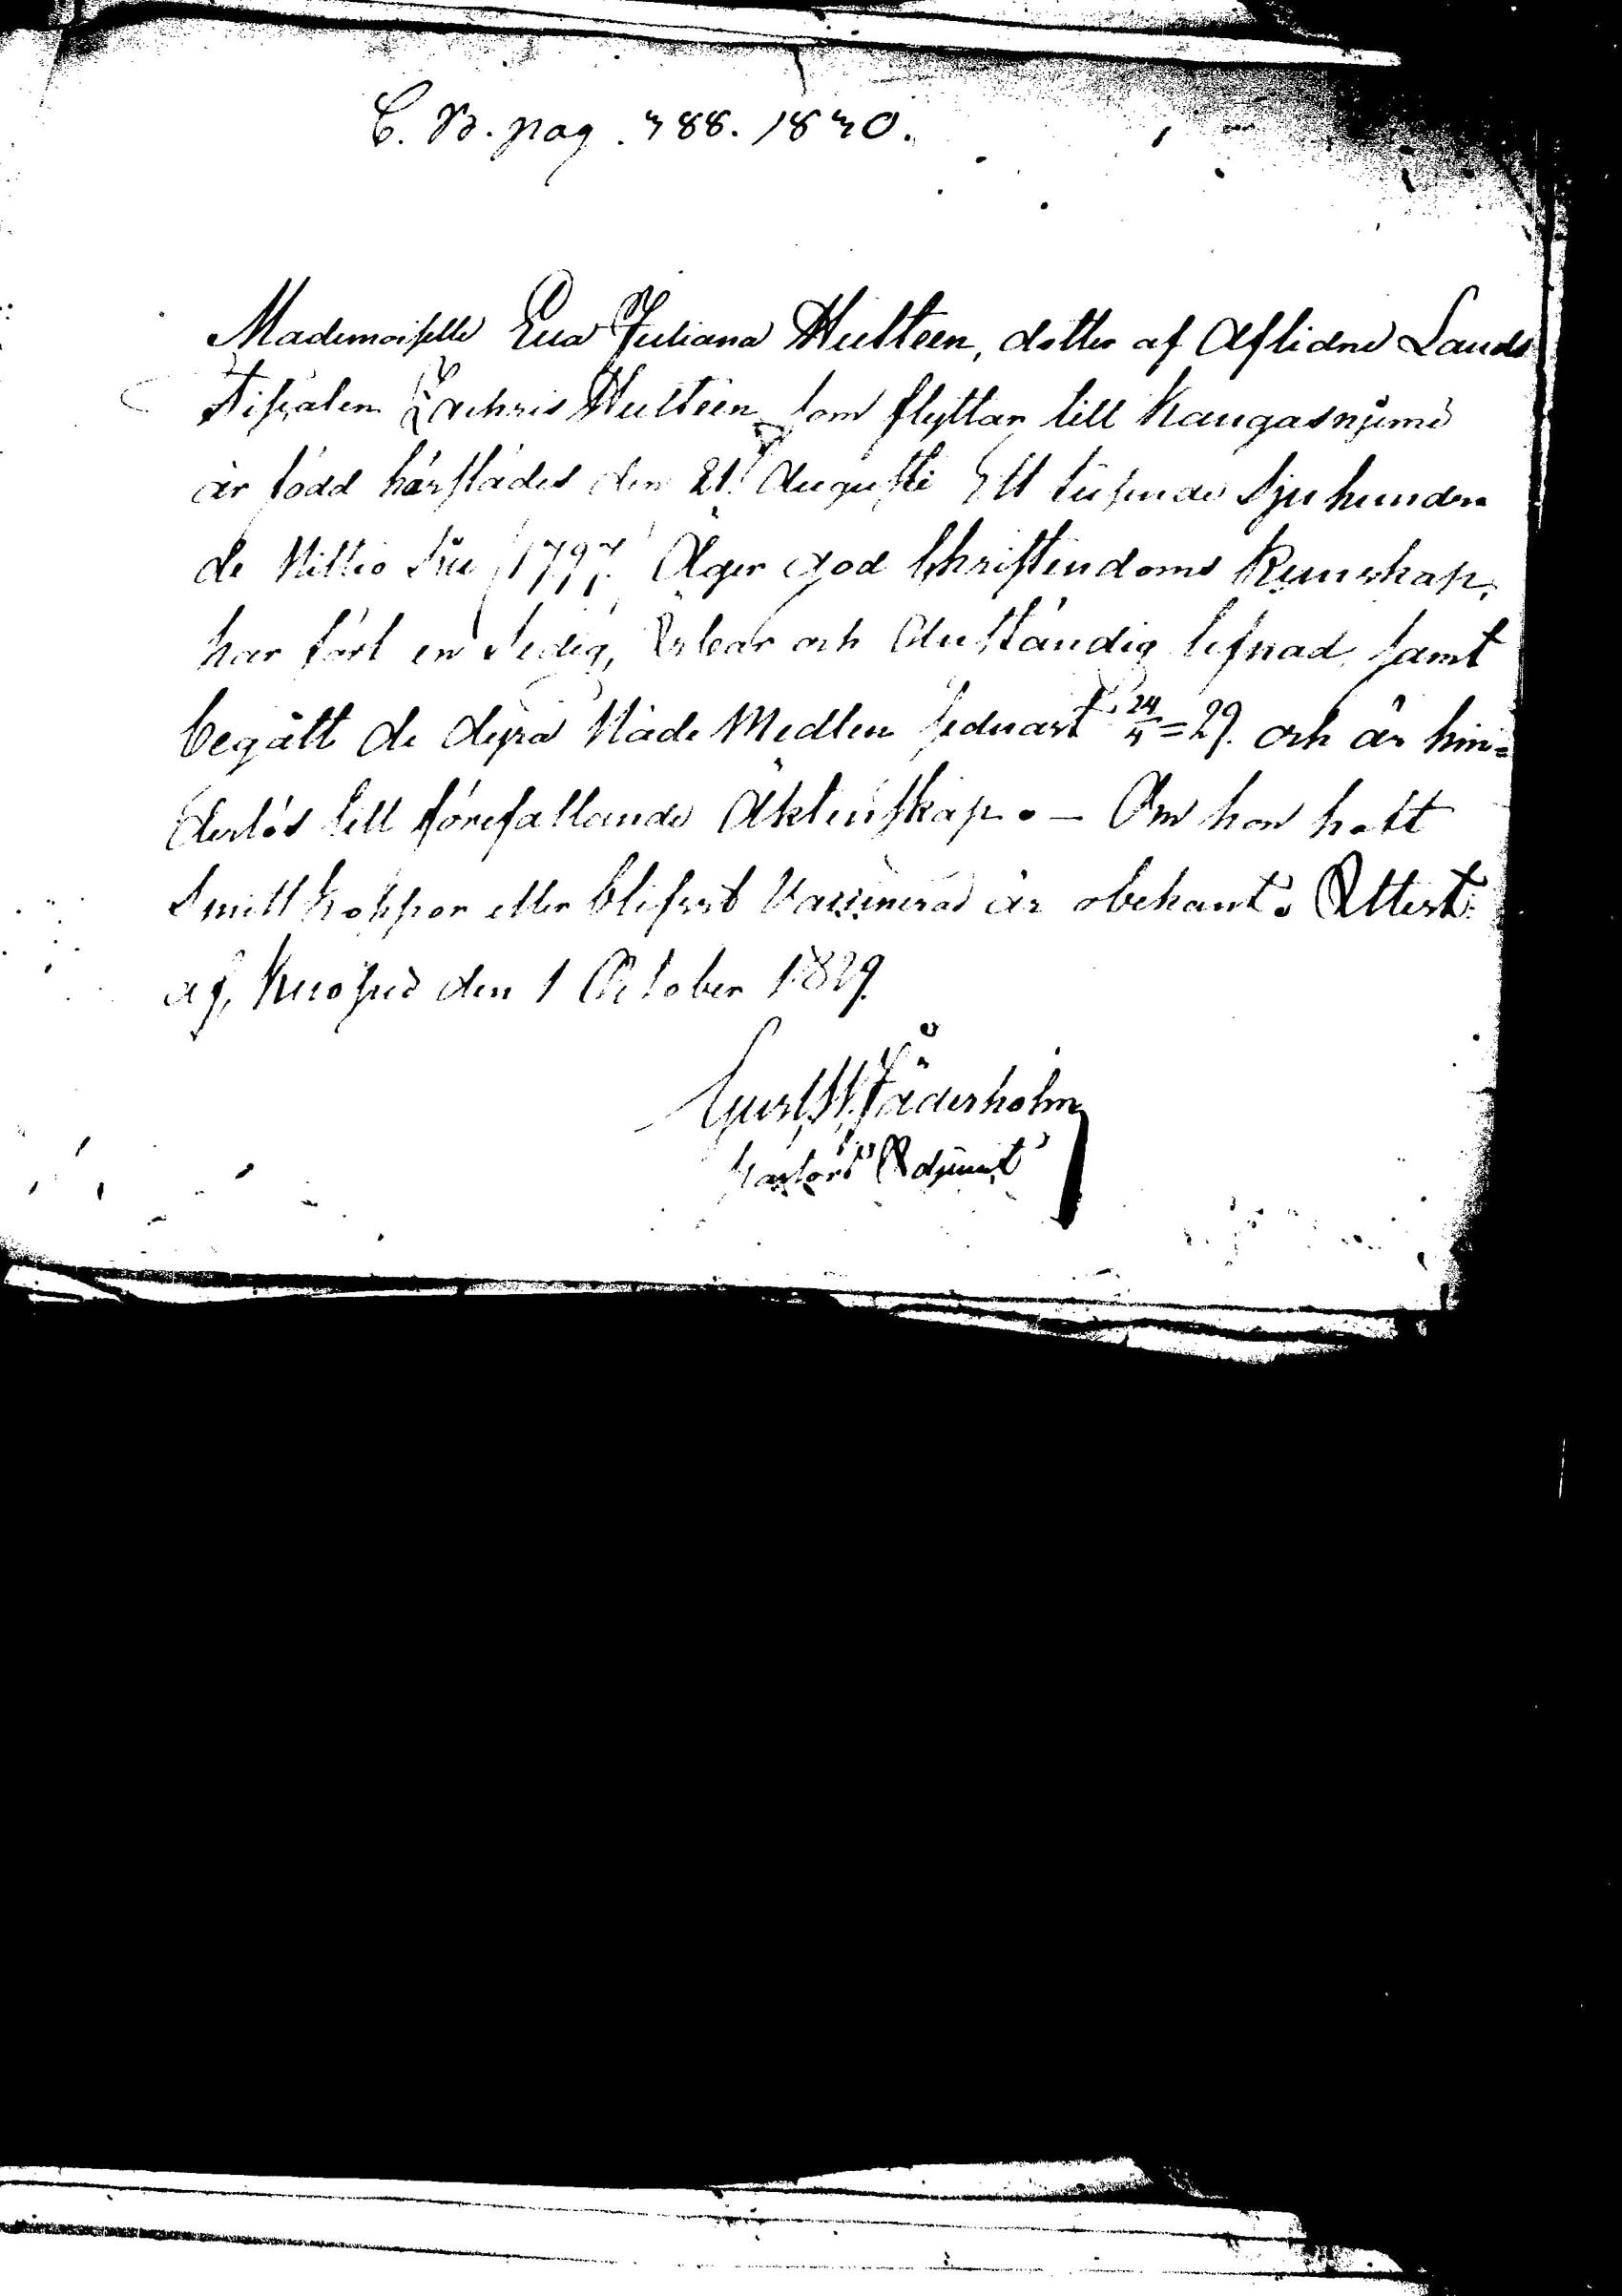 C. B. pag. 388. 1830.
Mademoiselle Eva Juliana Hulteen, dotter af Aflidne Lands
Fiscalen Zachris Hulteen som flyttar till Kangasnjemi
är född härstädes den 21 Augusti Ett tusende Sjuhunden
de Nittio Sju /1797/ Äger god Christendoms Kunskap,
har fört en sedig, Ärbar och Anständig lefnad, samt
begått de dyra Nåde Medlen sednast 24/4 = 29. och är hin=
derlös till förefallande Äktenskap. - Om hon haft
Smittkoppor eller blifvit Vaccinerad är obekant. Attest.
af, Kuopio den 1 October 1829.
Gust. W. Föderholm
Pastors Adjunct